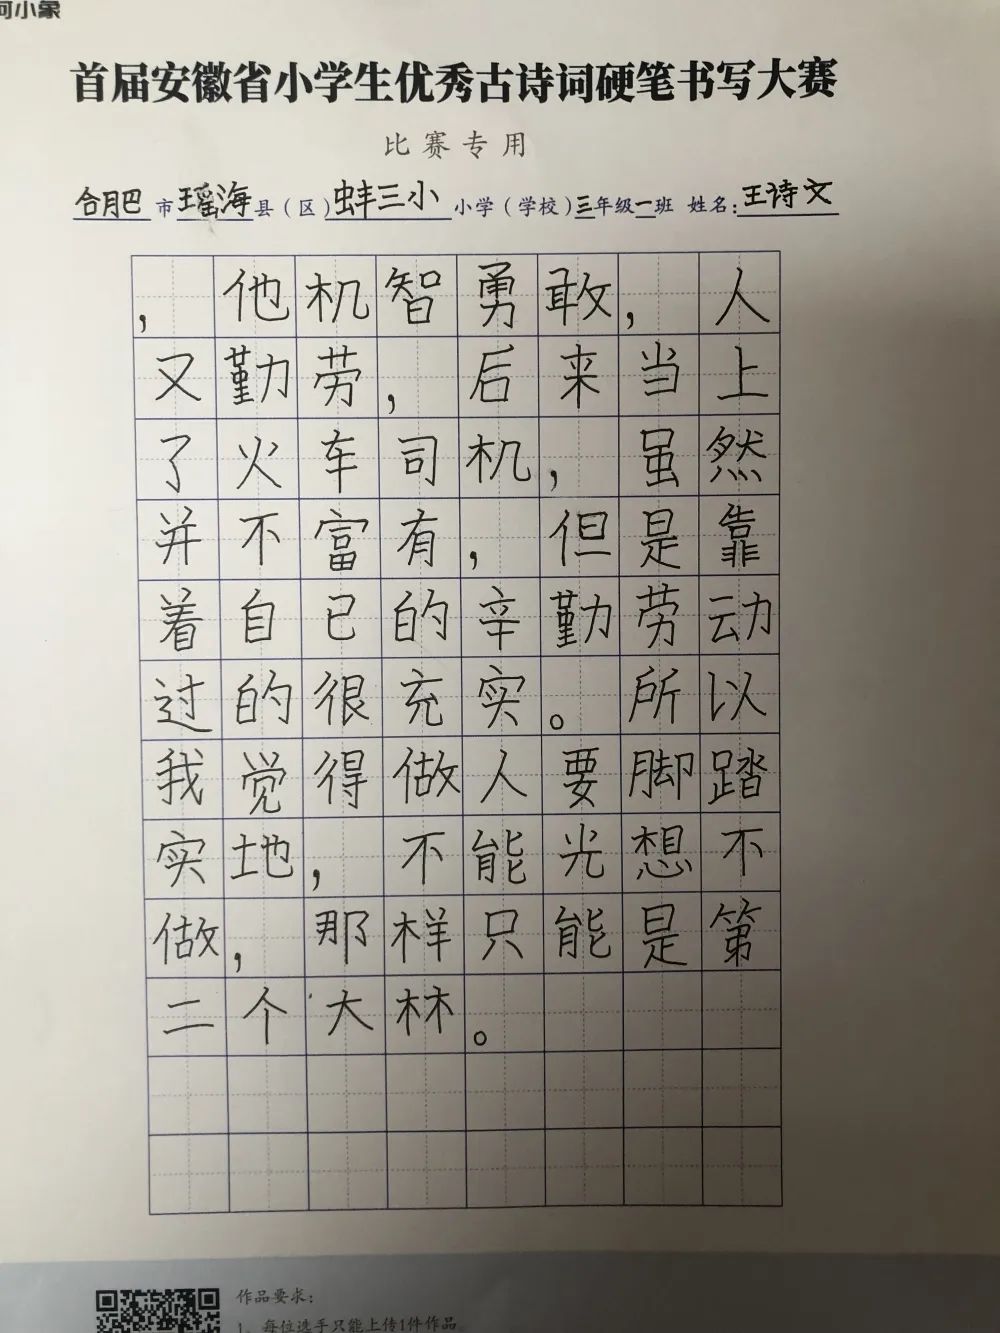 河小象
首届安徽省小学生优秀古诗词硬笔书写大赛
比赛专用
合肥市瑶海县（区）蚌三小小学（学校）三年级一班 姓名：王诗文
，他机智勇敢，人
又勤劳，后来当上
了火车司机，虽然
并不富有，但是靠
着自已的辛勤劳动
过的很充实。所以
我觉得做人要脚踏
实地，不能光想不
做，那样只能是第
二个大林。
作品要求：
1、每位选手只能上传1件作品